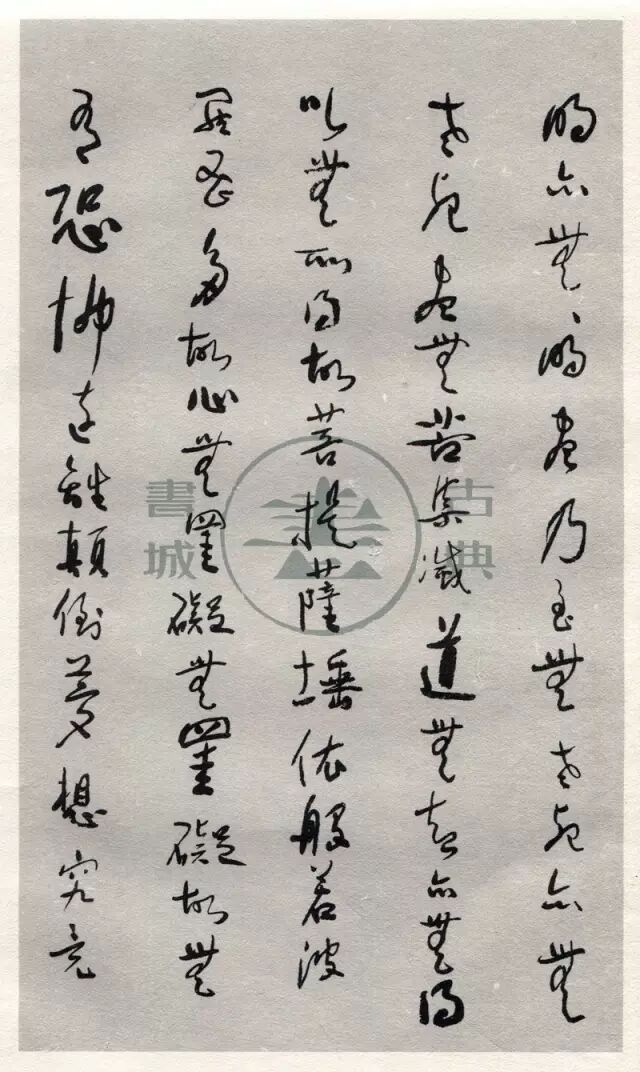 明亦無、明盡乃至無老死亦無
老死盡無苦集滅道無智亦無得
以無所得故菩提薩埵依般若波
羅蜜多故心無罣礙無罣礙故無
有恐怖遠離顛倒夢想究竟
古典
書城